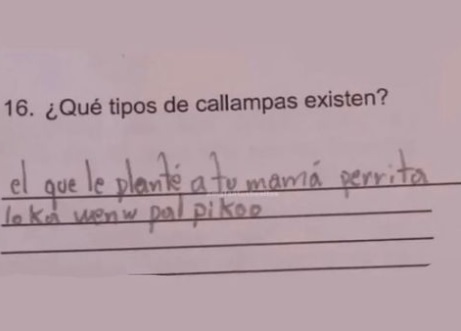 16. ¿Qué tipos de callampas existen?
el que le planté a tu mamá perrita
loka wenw pal pikoo